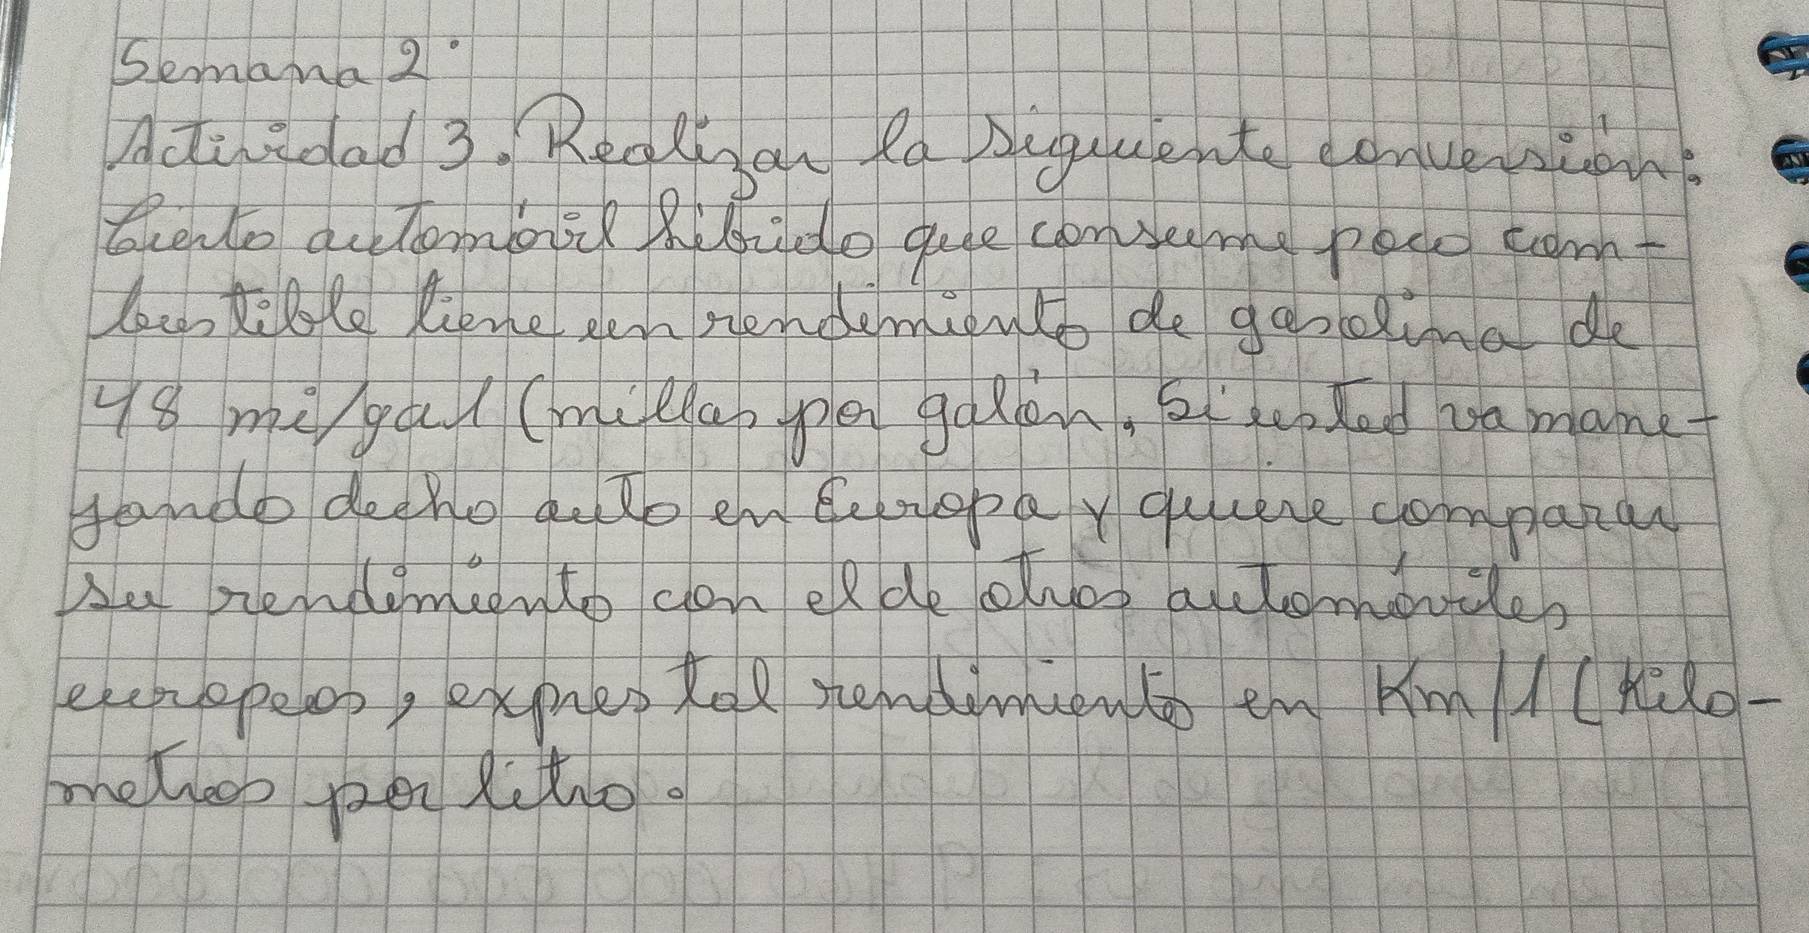 Semana 2.
Actividad 3. Realizar la siguiente conversión:
Cierto automóvil hibrido que consume poco com-
bustible tiene un rendimiento de gasolina de
48 mi/gal (millas por galón, Si usted va mane-
yando decho auto en Europa y quiere comparar
su rendimiento con el de otros automóviles
europeos, expres tal rendimiento en Km/l (Kilo-
metros por litro.